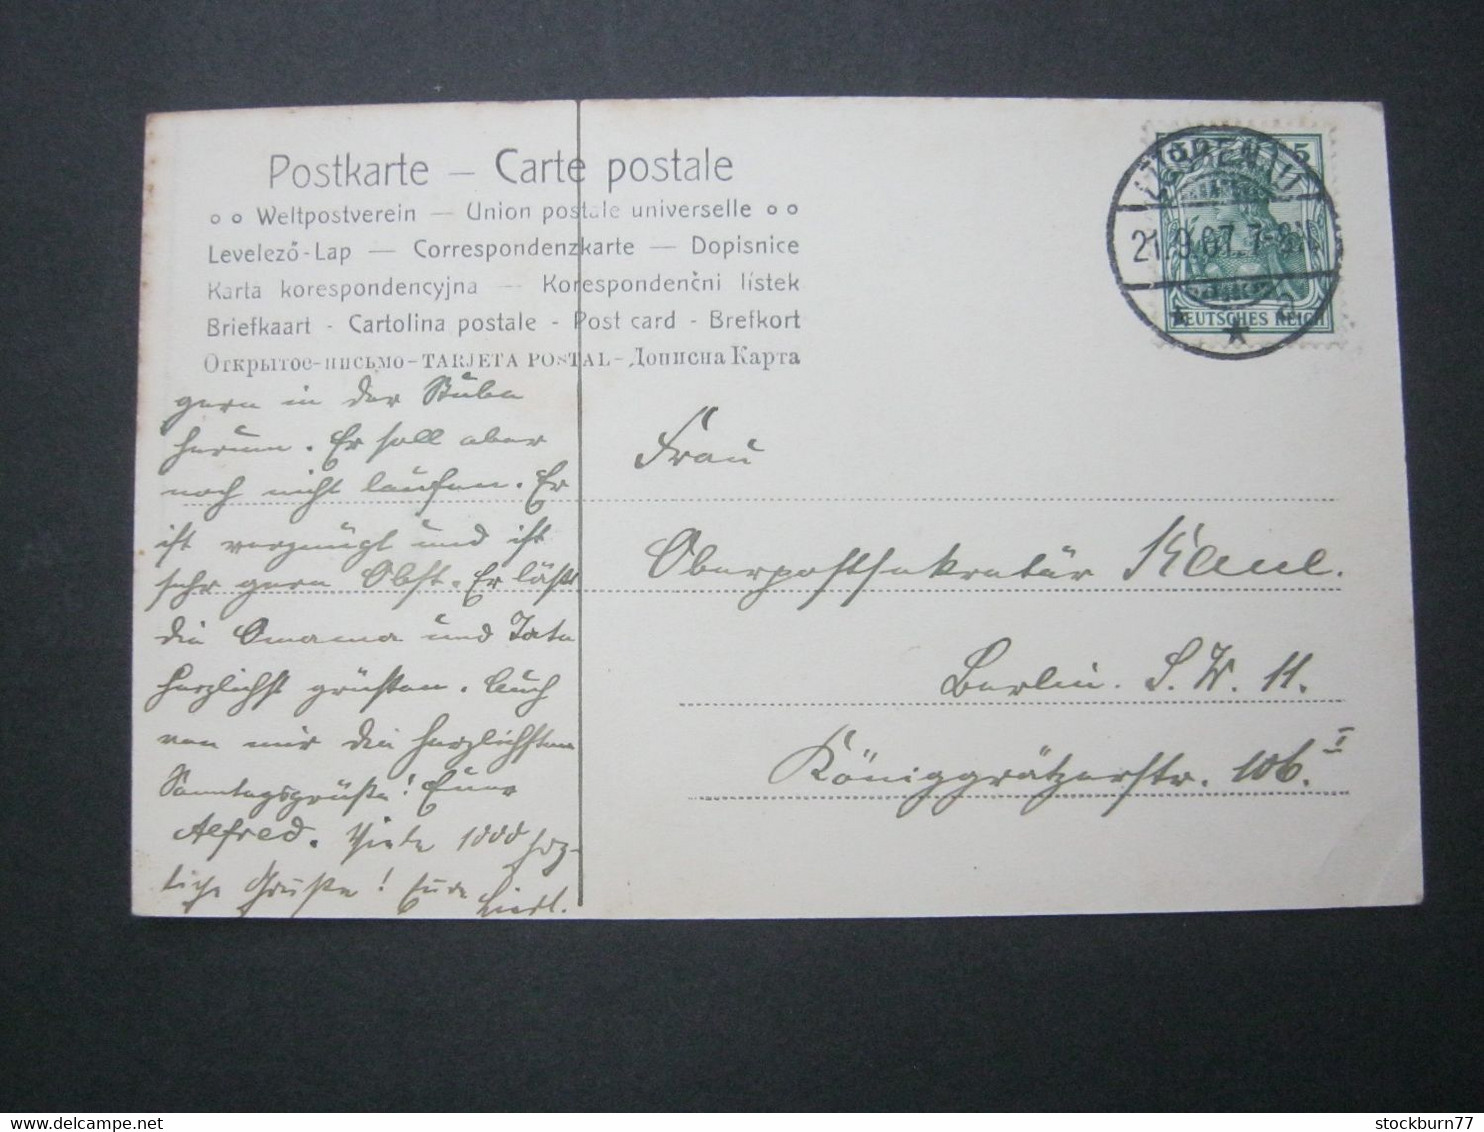 Postkarte – Carte postale
Weltpostverein – Union postale universelle
Levelező-Lap – Correspondenzkarte – Dopisnice
Karta korespondencyjna – Korespondenčni lístek
Briefkaart - Cartolina postale - Post card - Brefkort
Открытое-письмо-TARJETA POSTAL-Дописна Карта
5
21.9.07. 7-8
DEUTSCHES REICH
gern in der Stube
herum. Er soll aber
noch nicht laufen. Er
ist vergnügt und ist
sehr gern Obst. Er läßt
die Omama und Tata
herzlichst grüßen. Auch
von mir die herzlichsten
Sonntagsgrüße! Euer
Alfred. Viele 1000 herz-
liche Grüße! Eure
Frau
Oberpostsekretär Kaul.
Berlin. S. W. 11.
Königgrätzerstr. 106. I
stockburn77